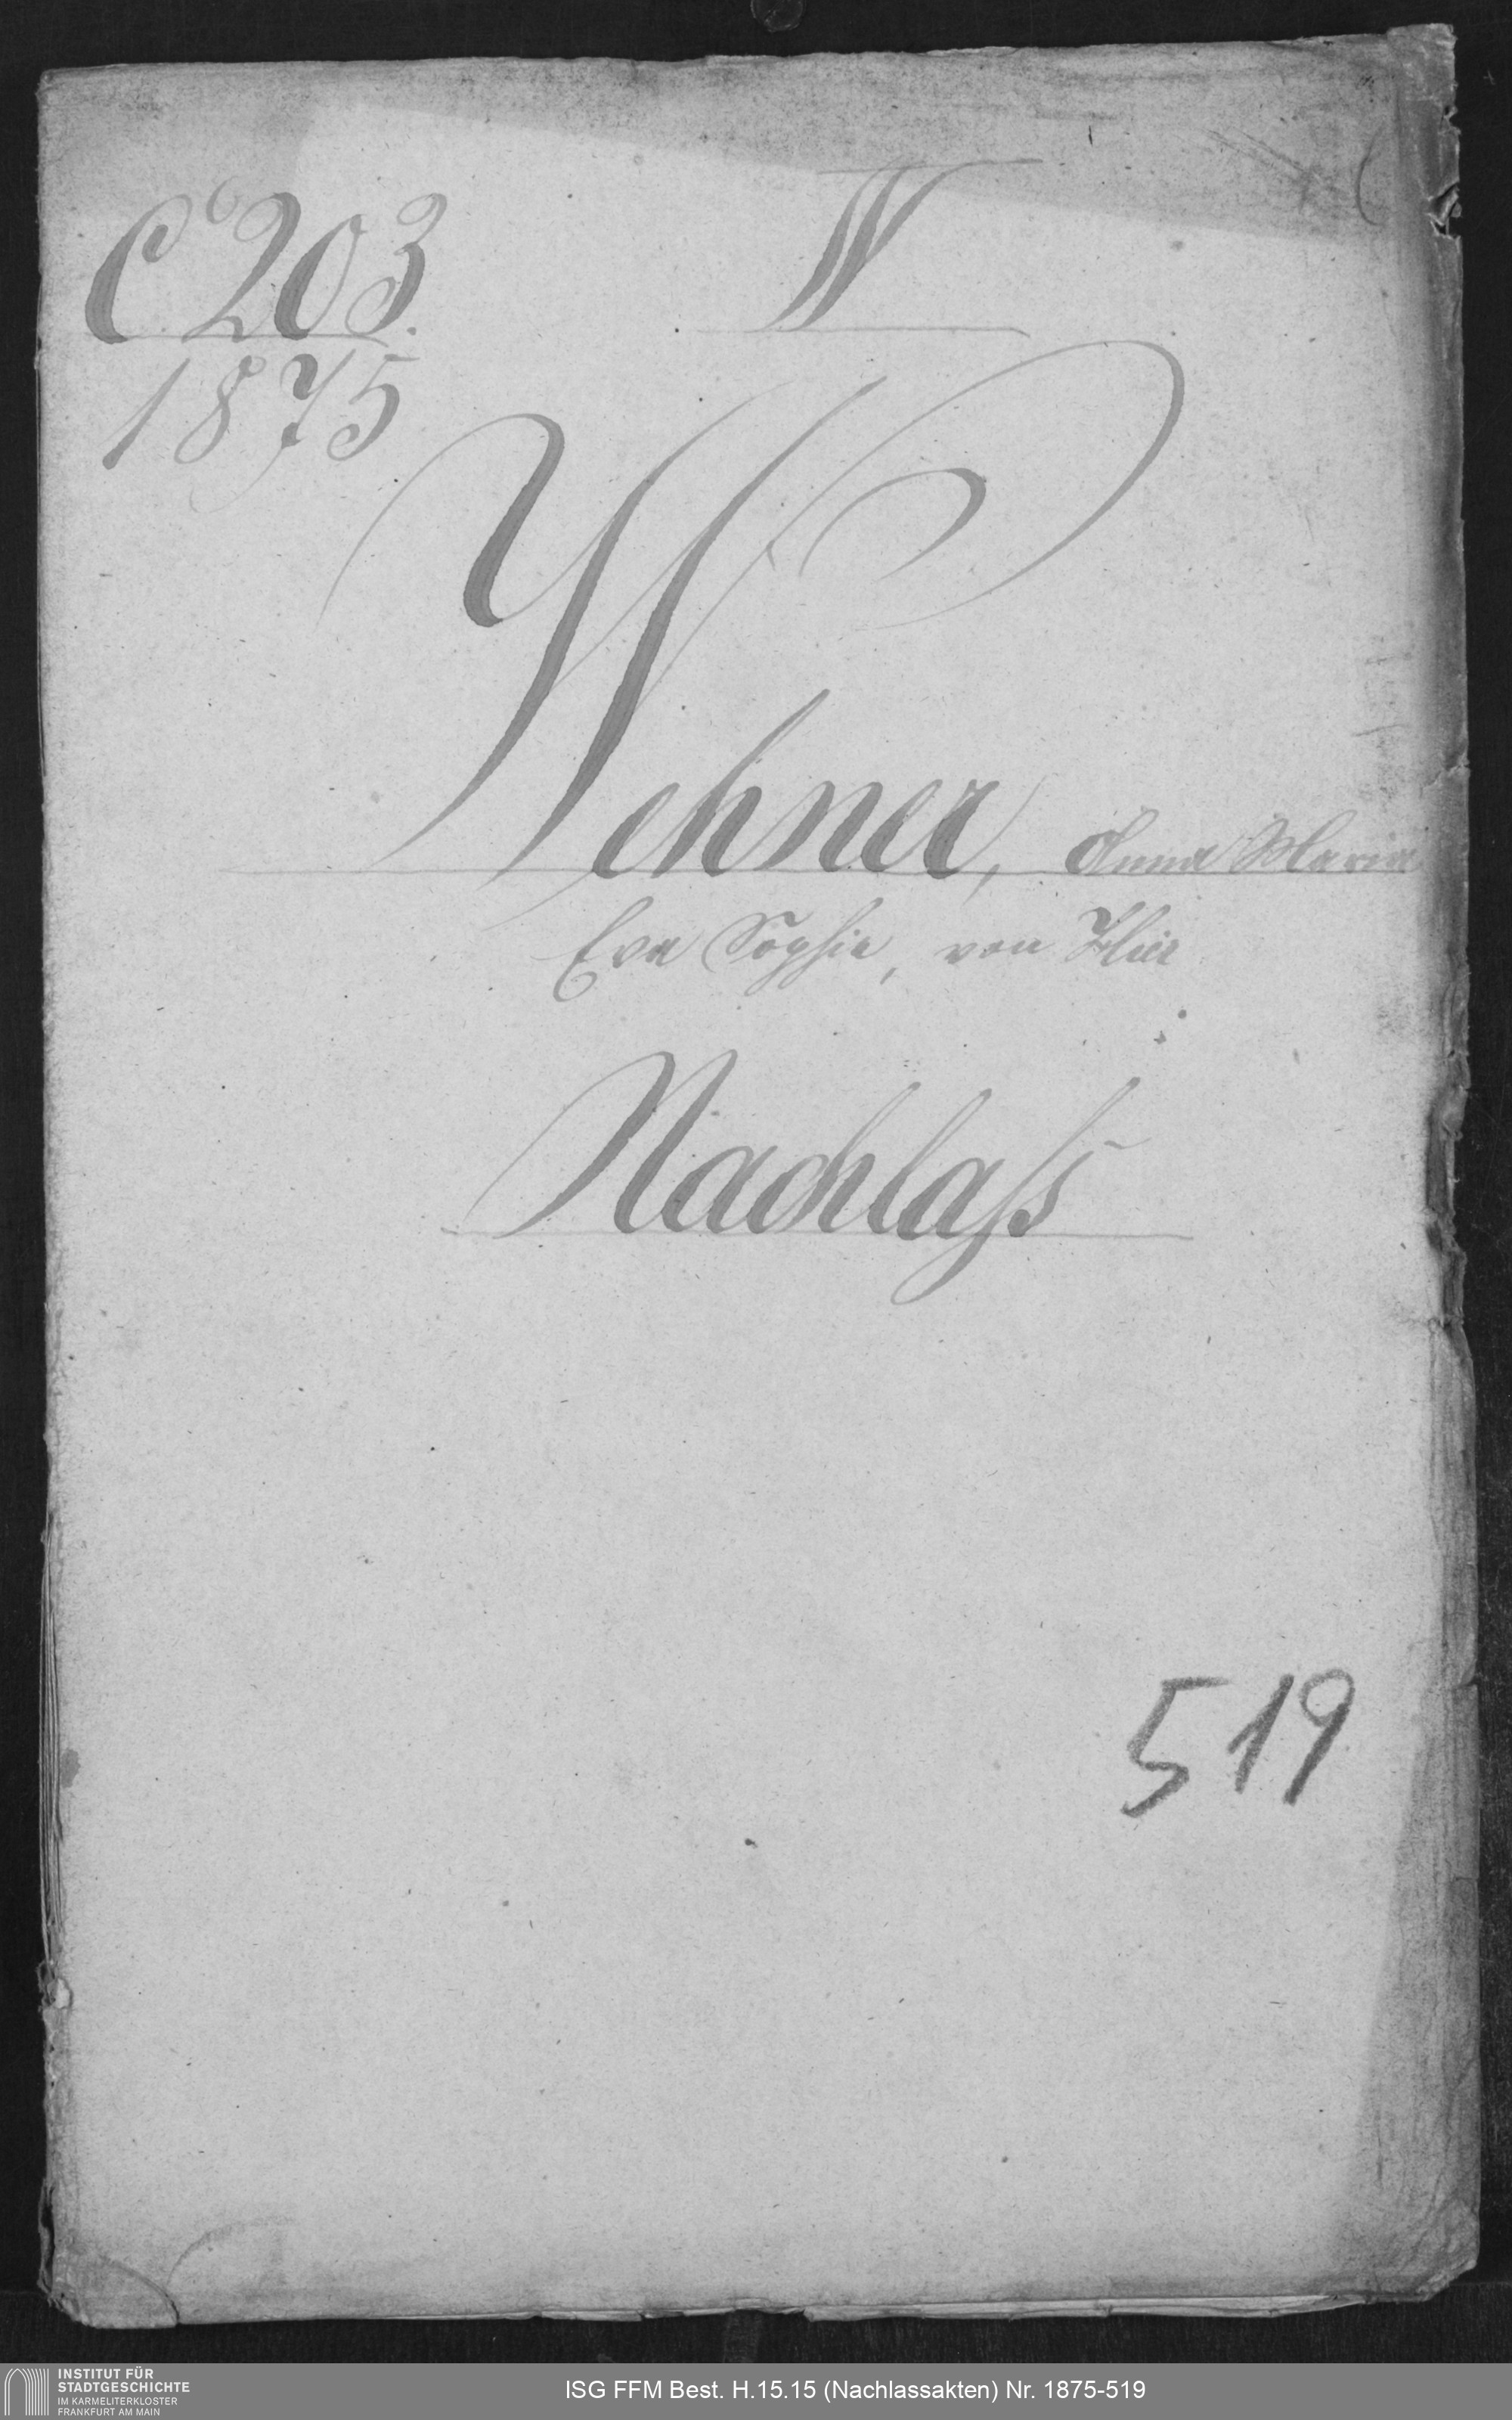 C 203.
1875
W
Wehner, Anna Maria
Eva Sophie, von
Nachlaß
519
INSTITUT FÜR
STADTGESCHICHTE
IM KARMELITERKLOSTER
FRANKFURT AM MAIN
ISG FFM Best. H.15.15 (Nachlassakten) Nr. 1875-519